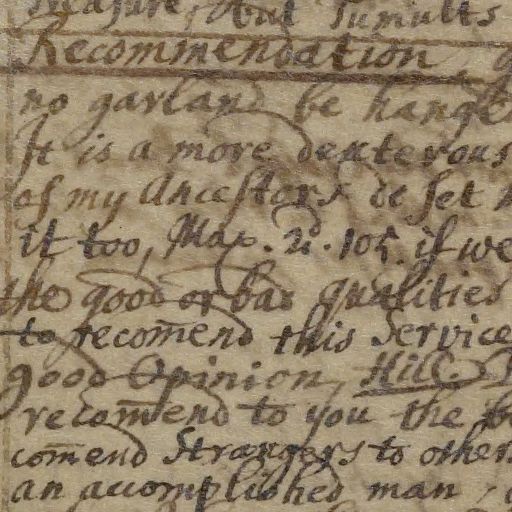 Measure, but Tumults
Recommendation,
no garland be hang
It is a more dexterous
of my Ancestors be set
it too, Max. 2d. 105. if we
the good or bad qualities
to recom̄end this Service
good Opinion, Hill.
recom̄end to you the
com̄end Strangers to other
an accomplished man,